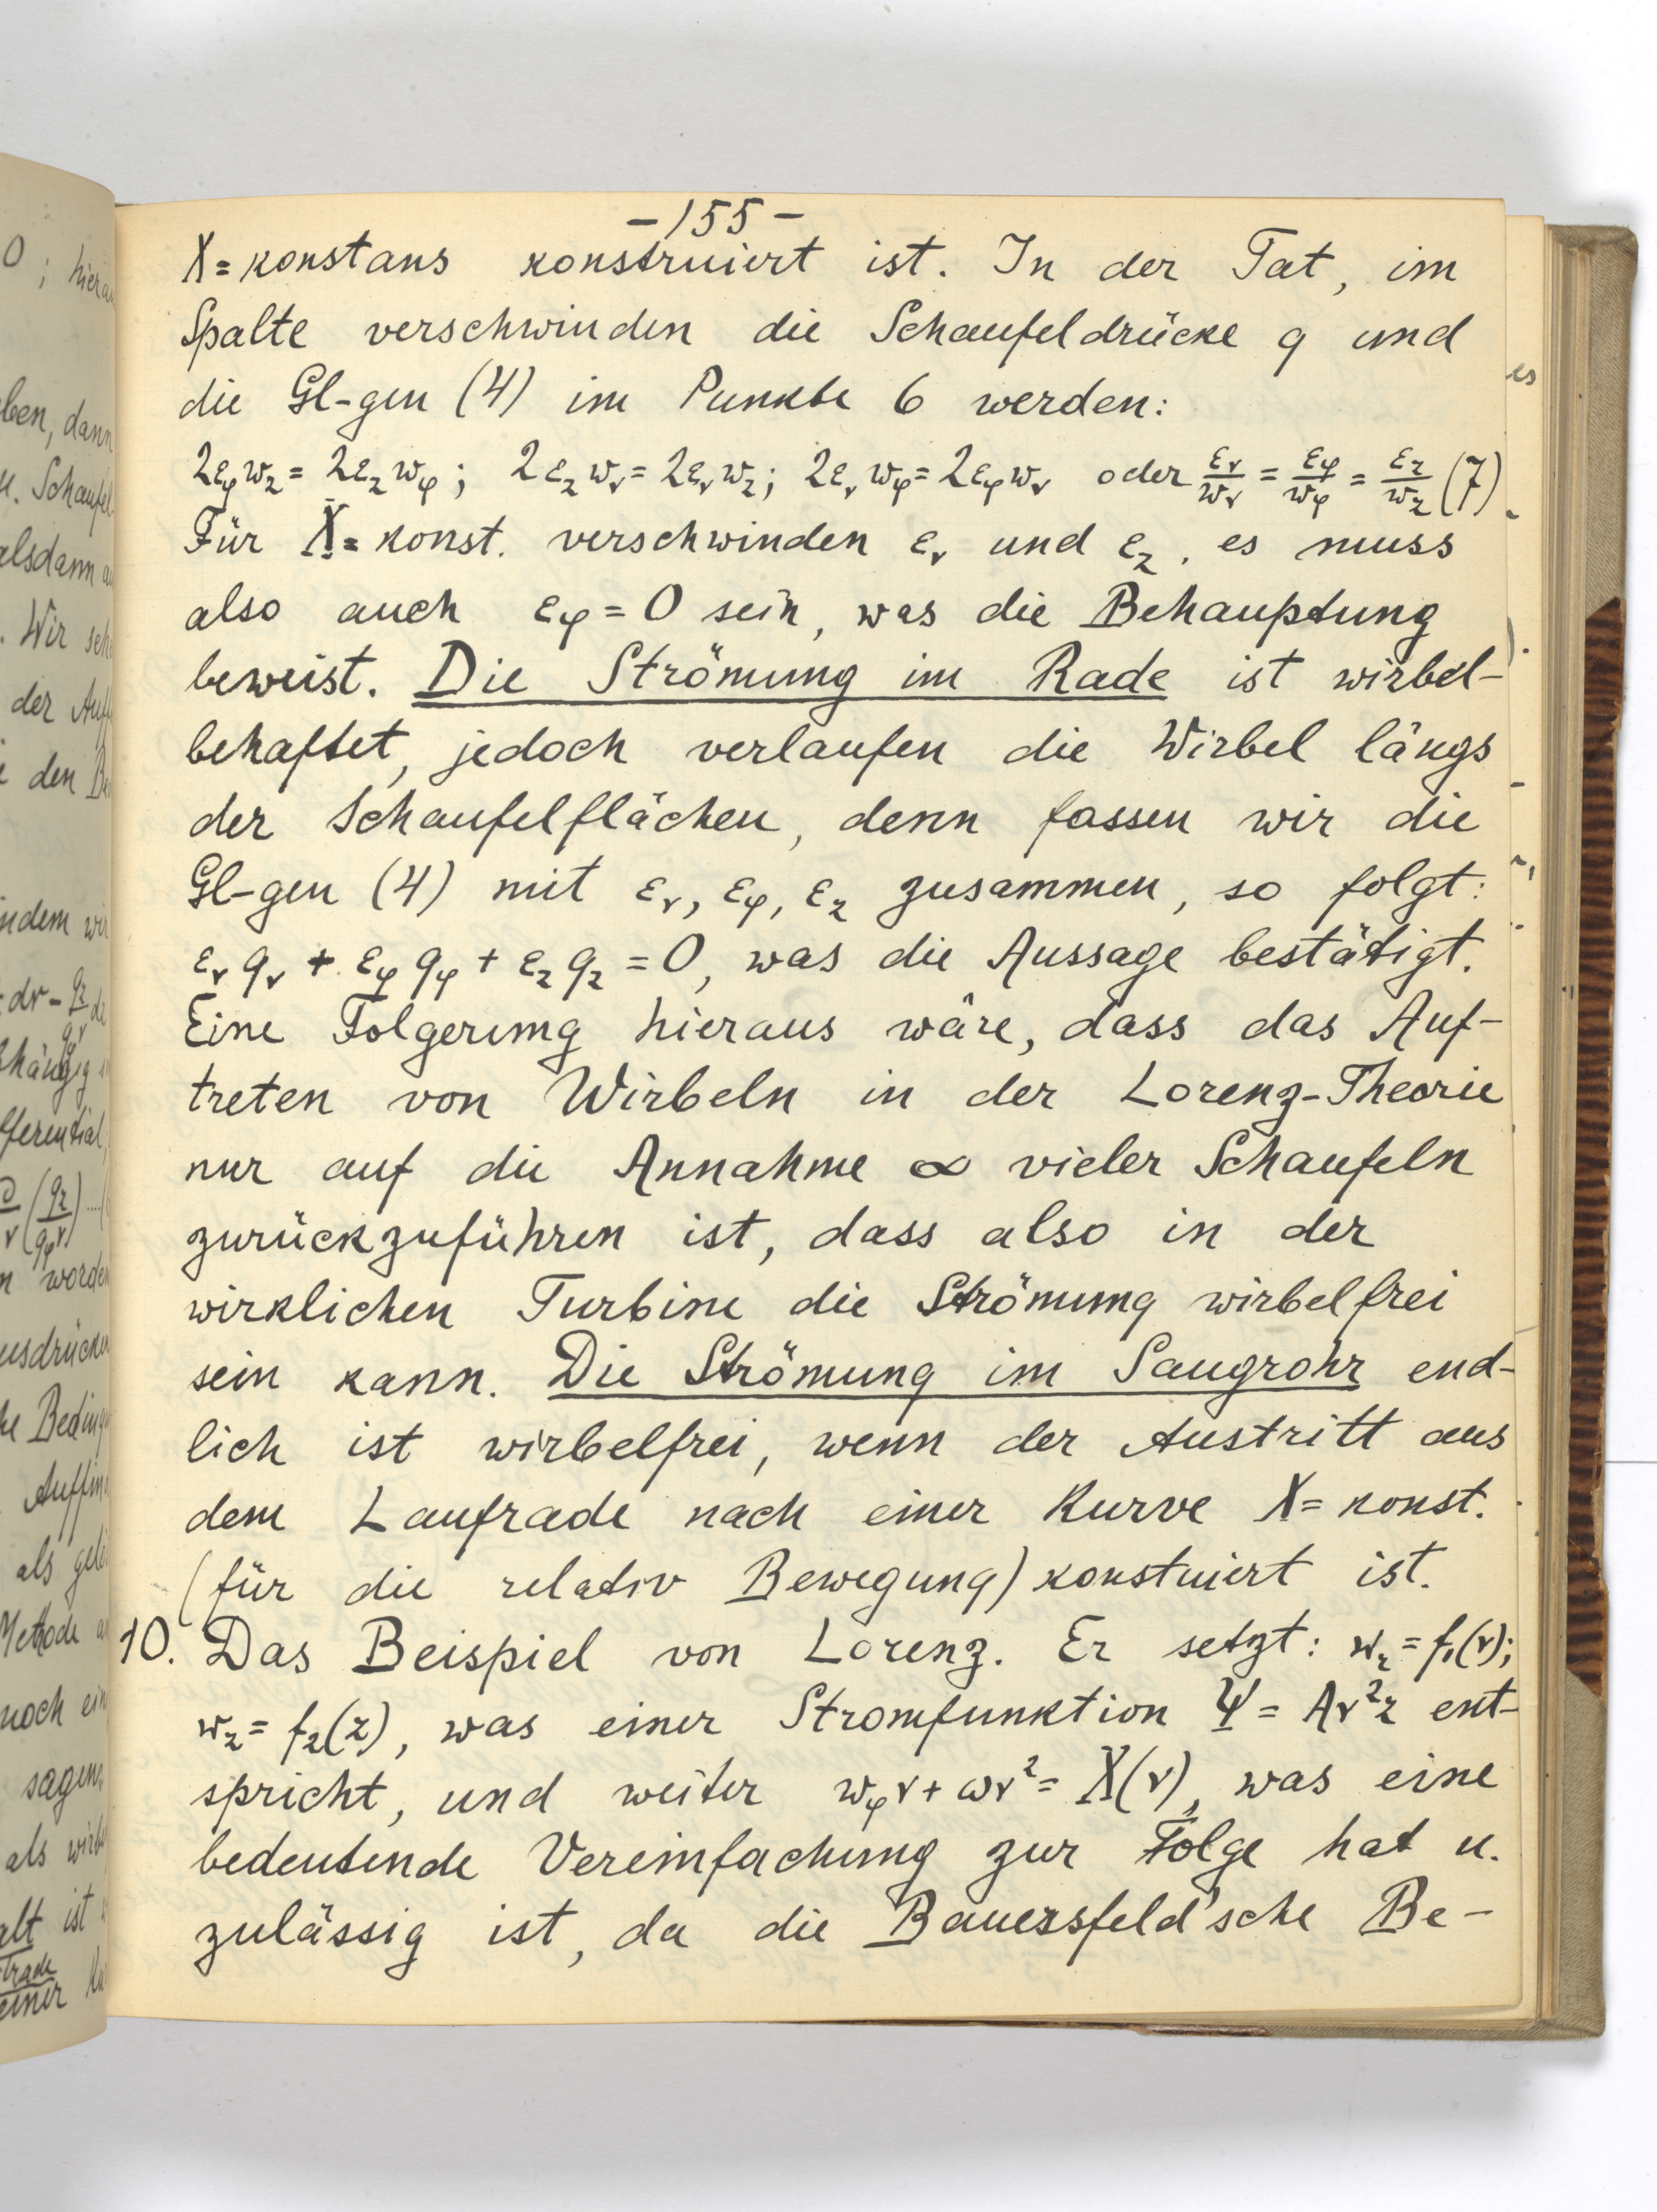 -155-
X = konstans konstruiert ist. In der Tat, im
Spalte verschwinden die Schaufeldrücke q und
die Gl-gen (4) im Punkte 6 werden:
2ε_φ w_z = 2ε_z w_φ; 2ε_z w_r = 2ε_r w_z; 2ε_r w_φ = 2ε_φ w_r oder ε_r/w_r = ε_φ/w_φ = ε_z/w_z (7)
Für X = konst. verschwinden ε_r und ε_z, es muss
also auch ε_φ = 0 sein, was die Behauptung
beweist. Die Strömung im Rade ist wirbel-
behaftet, jedoch verlaufen die Wirbel längs
der Schaufelflächen, denn fassen wir die
Gl-gen (4) mit ε_r, ε_φ, ε_z zusammen, so folgt:
ε_r q_r + ε_φ q_φ + ε_z q_z = 0, was die Aussage bestätigt.
Eine Folgerung hieraus wäre, dass das Auf-
treten von Wirbeln in der Lorenz-Theorie
nur auf die Annahme ∞ vieler Schaufeln
zurückzuführen ist, dass also in der
wirklichen Turbine die Strömung wirbelfrei
sein kann. Die Strömung im Saugrohr end-
lich ist wirbelfrei, wenn der Austritt aus
dem Laufrade nach einer Kurve X = konst.
(für die relativ Bewegung) konstuiert ist.
10. Das Beispiel von Lorenz. Er setzt: w_r = f₁(r);
w_z = f₂(z), was einer Stromfunktion Ψ = Ar²z ent-
spricht, und weiter w_φ r + ωr² = X(r), was eine
bedeutende Vereinfachung zur Folge hat u.
zulässig ist, da die Bauersfeld'sche Be-